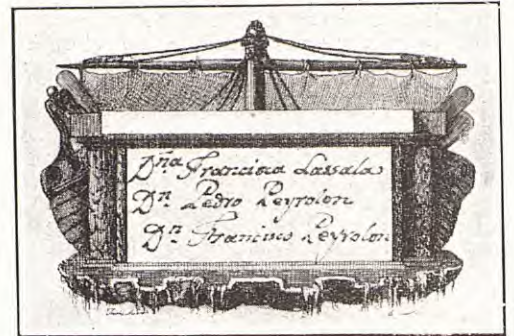 Dña Francisca Lassala
Dn Pedro Peyrolon
Dn Francisco Peyrolon